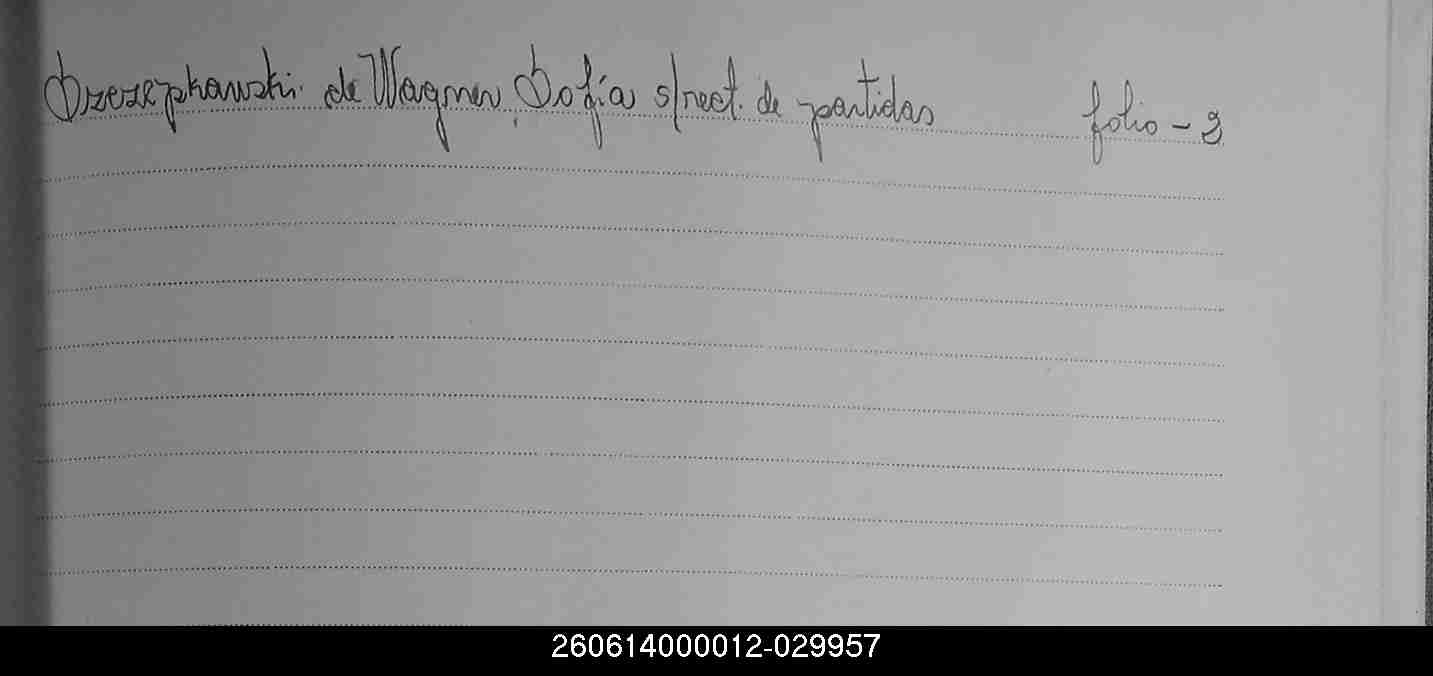 Szezepkawski de Wagner, Sofía s/rect. de partidas folio - 2
260614000012-029957